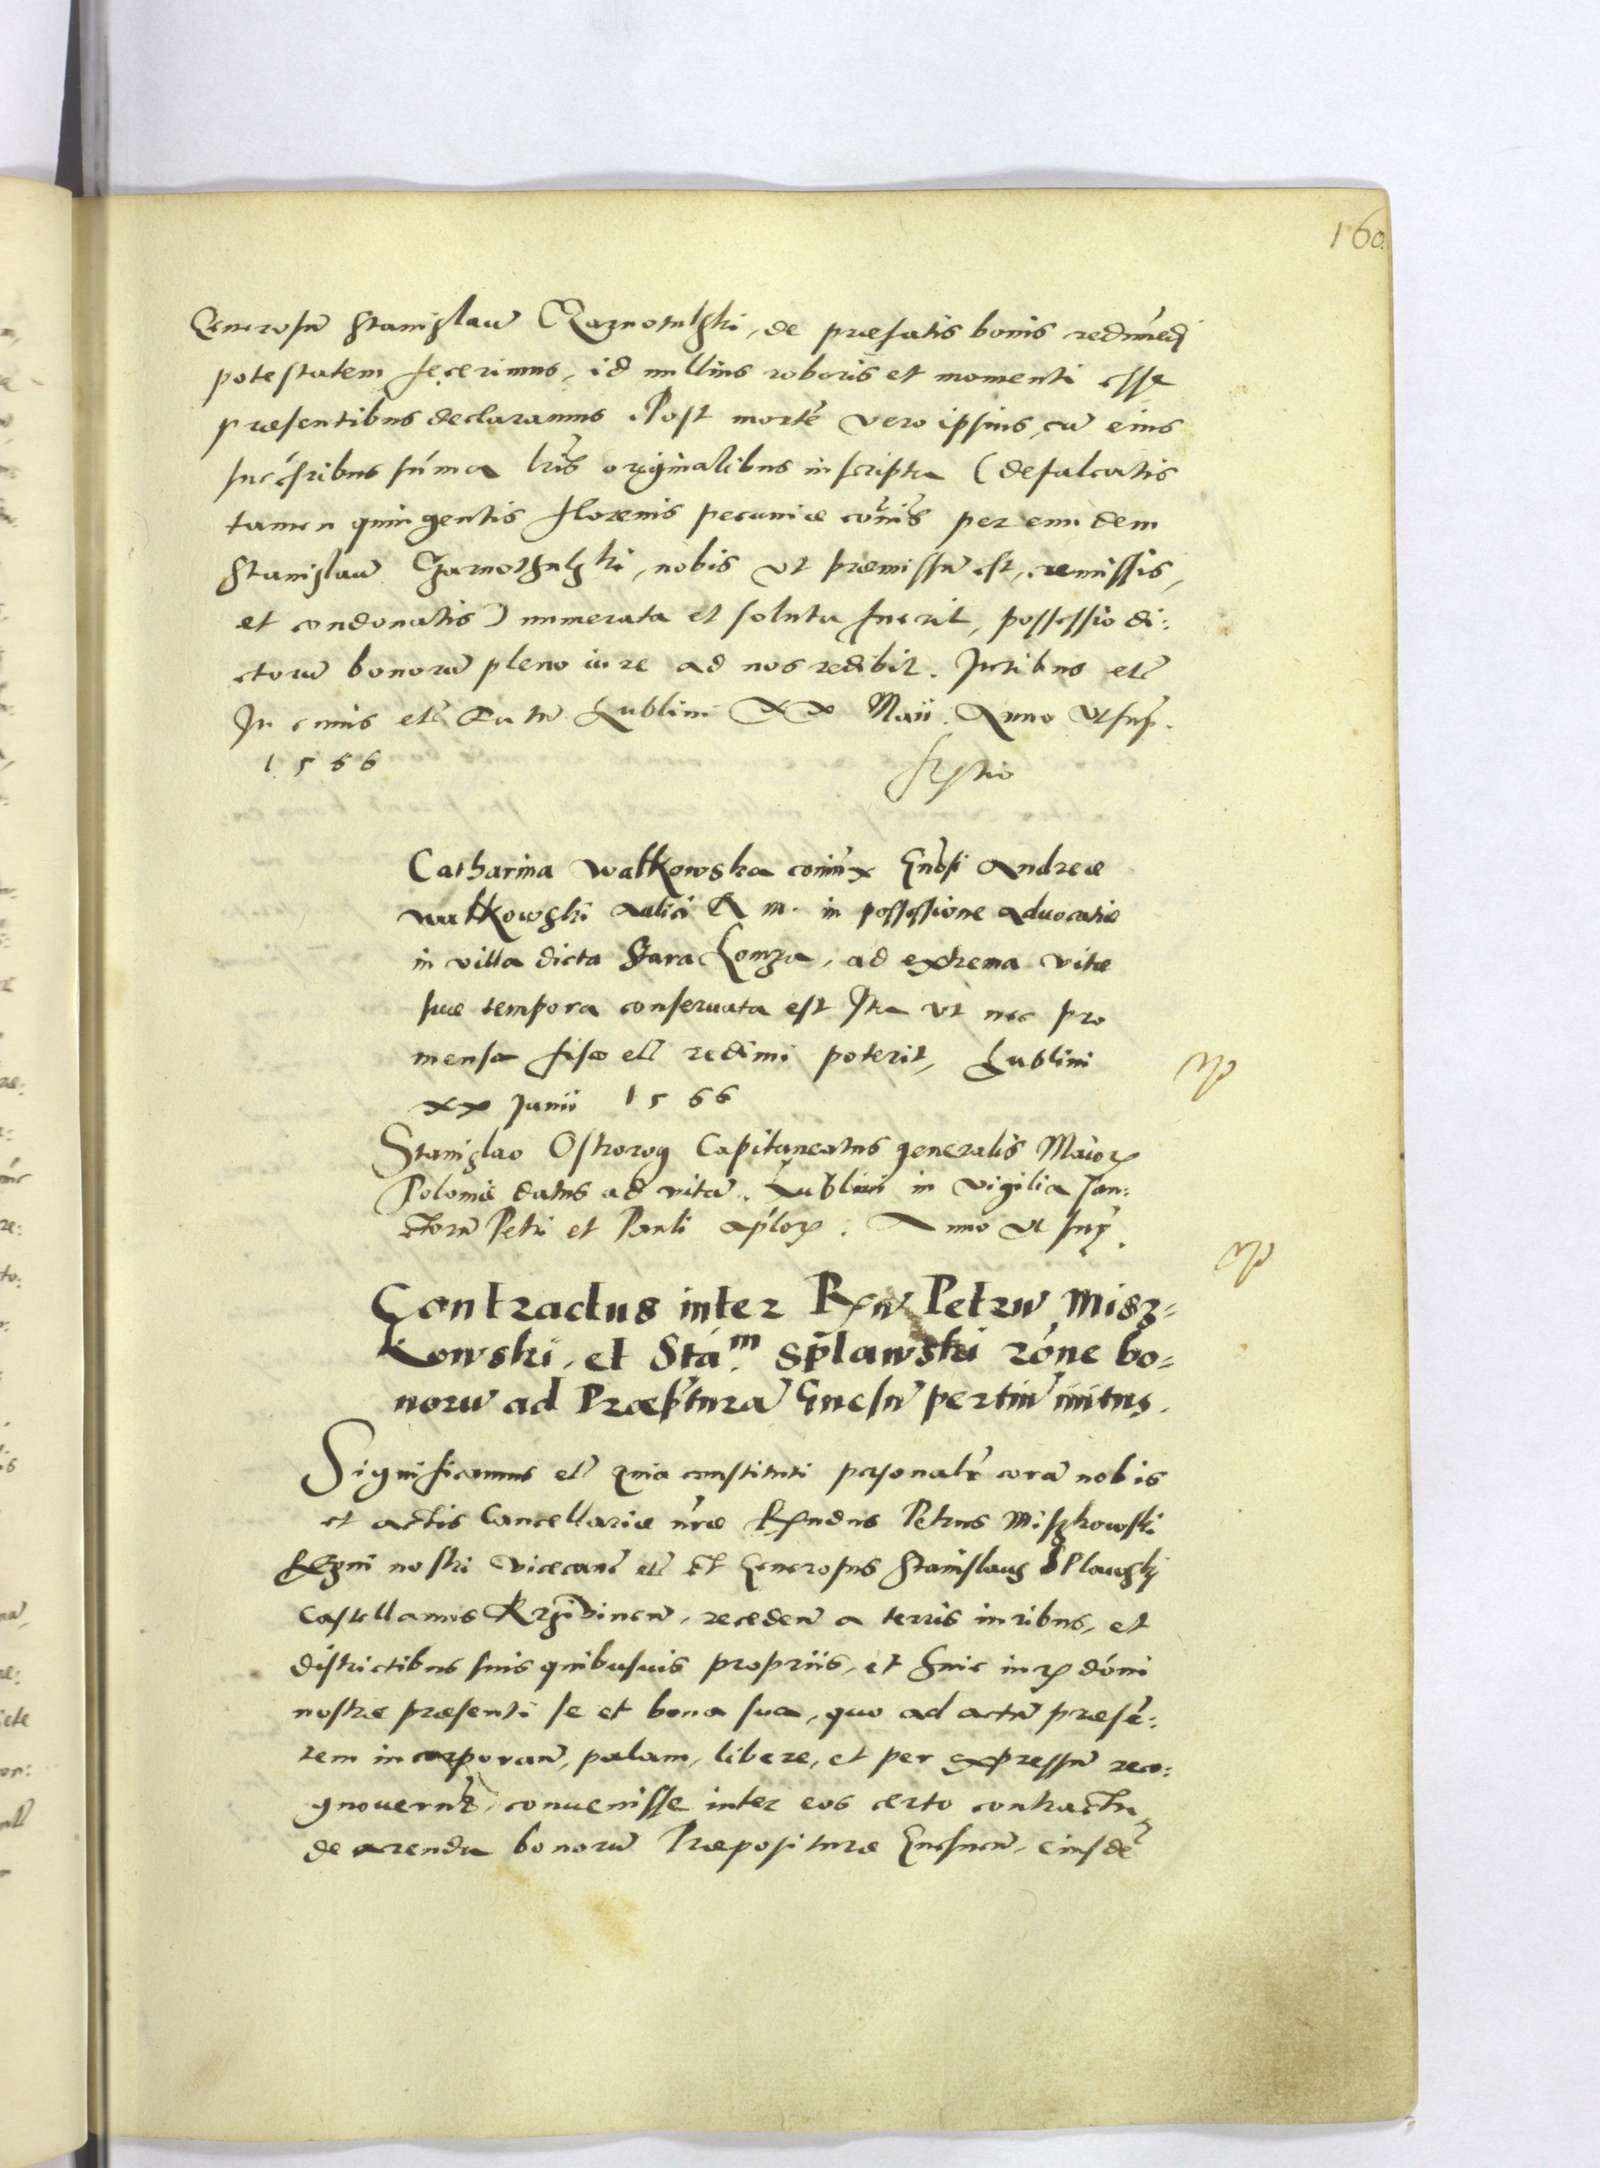 160.
Generosū Stanislaū Czarnotulski, de præfatis bonis redimēdi
potestatem fecerimus, id nullius roboris et momenti esse
præsentibus declaramus. Post mortē vero ipsius, cū eius
succ̄sribus sūma lr̄is originalibus inscripta (defalcatis
tamen quingentis florenis pecuniæ cōm̄is per eundem
Stanislaū Czarnothulski, nobis vt præmissū est, remissis,
et condonatis) numerata et soluta fuerit, possessio di:
ctorū bonorū pleno iure ad nos redibit. Jurībus etc̄
In cuius etc̄ Datū Lublini XX Maii. Anno vt sup̄.
1566
Catharina Watkowska coniūx Gn̄osi Andreæ
Watkowski aulici R. M. in possessione aduocatiæ
in villa dicta Stara Lomza, ad extrema vitæ
suæ tempora conseruata est Ita vt nec pro
mensa fisco etc̄ redimi poterit, Lublini
XX Junii 1566
Stanislao Ostrorog Capitaneatus generalis Maioꝝ
Poloniæ datus ad vitā. Lublini in vigilia san:
ctorū Petri et Pauli ap̄loꝝ. Anno vt sup̄.
Contractus inter Rn̄ Petrū Misz=
kowski, et Stā.m Sp̄lawski rōne bo=
norū ad Præp̄turā Gnesn̄ pertin̄ initus.
Significamus etc̄ Quia constituti psonalr̄ corā nobis
et actis Cancellariæ nr̄æ Rn̄dus Petrus Miszkowski
Regni nostri Vicecanc̄ etc̄ Et Generosus Stanislaus SPlawskj
Castellanus Krziwinen̄, receden̄ a terris iuribus, et
districtibus suis quibusuis propriis, et huic iurisd̄ōni
nostræ præsenti se et bona sua, quo ad actū præsē:
tem incorporan̄, palam, libere, et per expressū reco:
gnouerūt, conuenisse inter eos certo contractu
de arenda bonorū Præposituræ Gnesnen̄, eiusdē